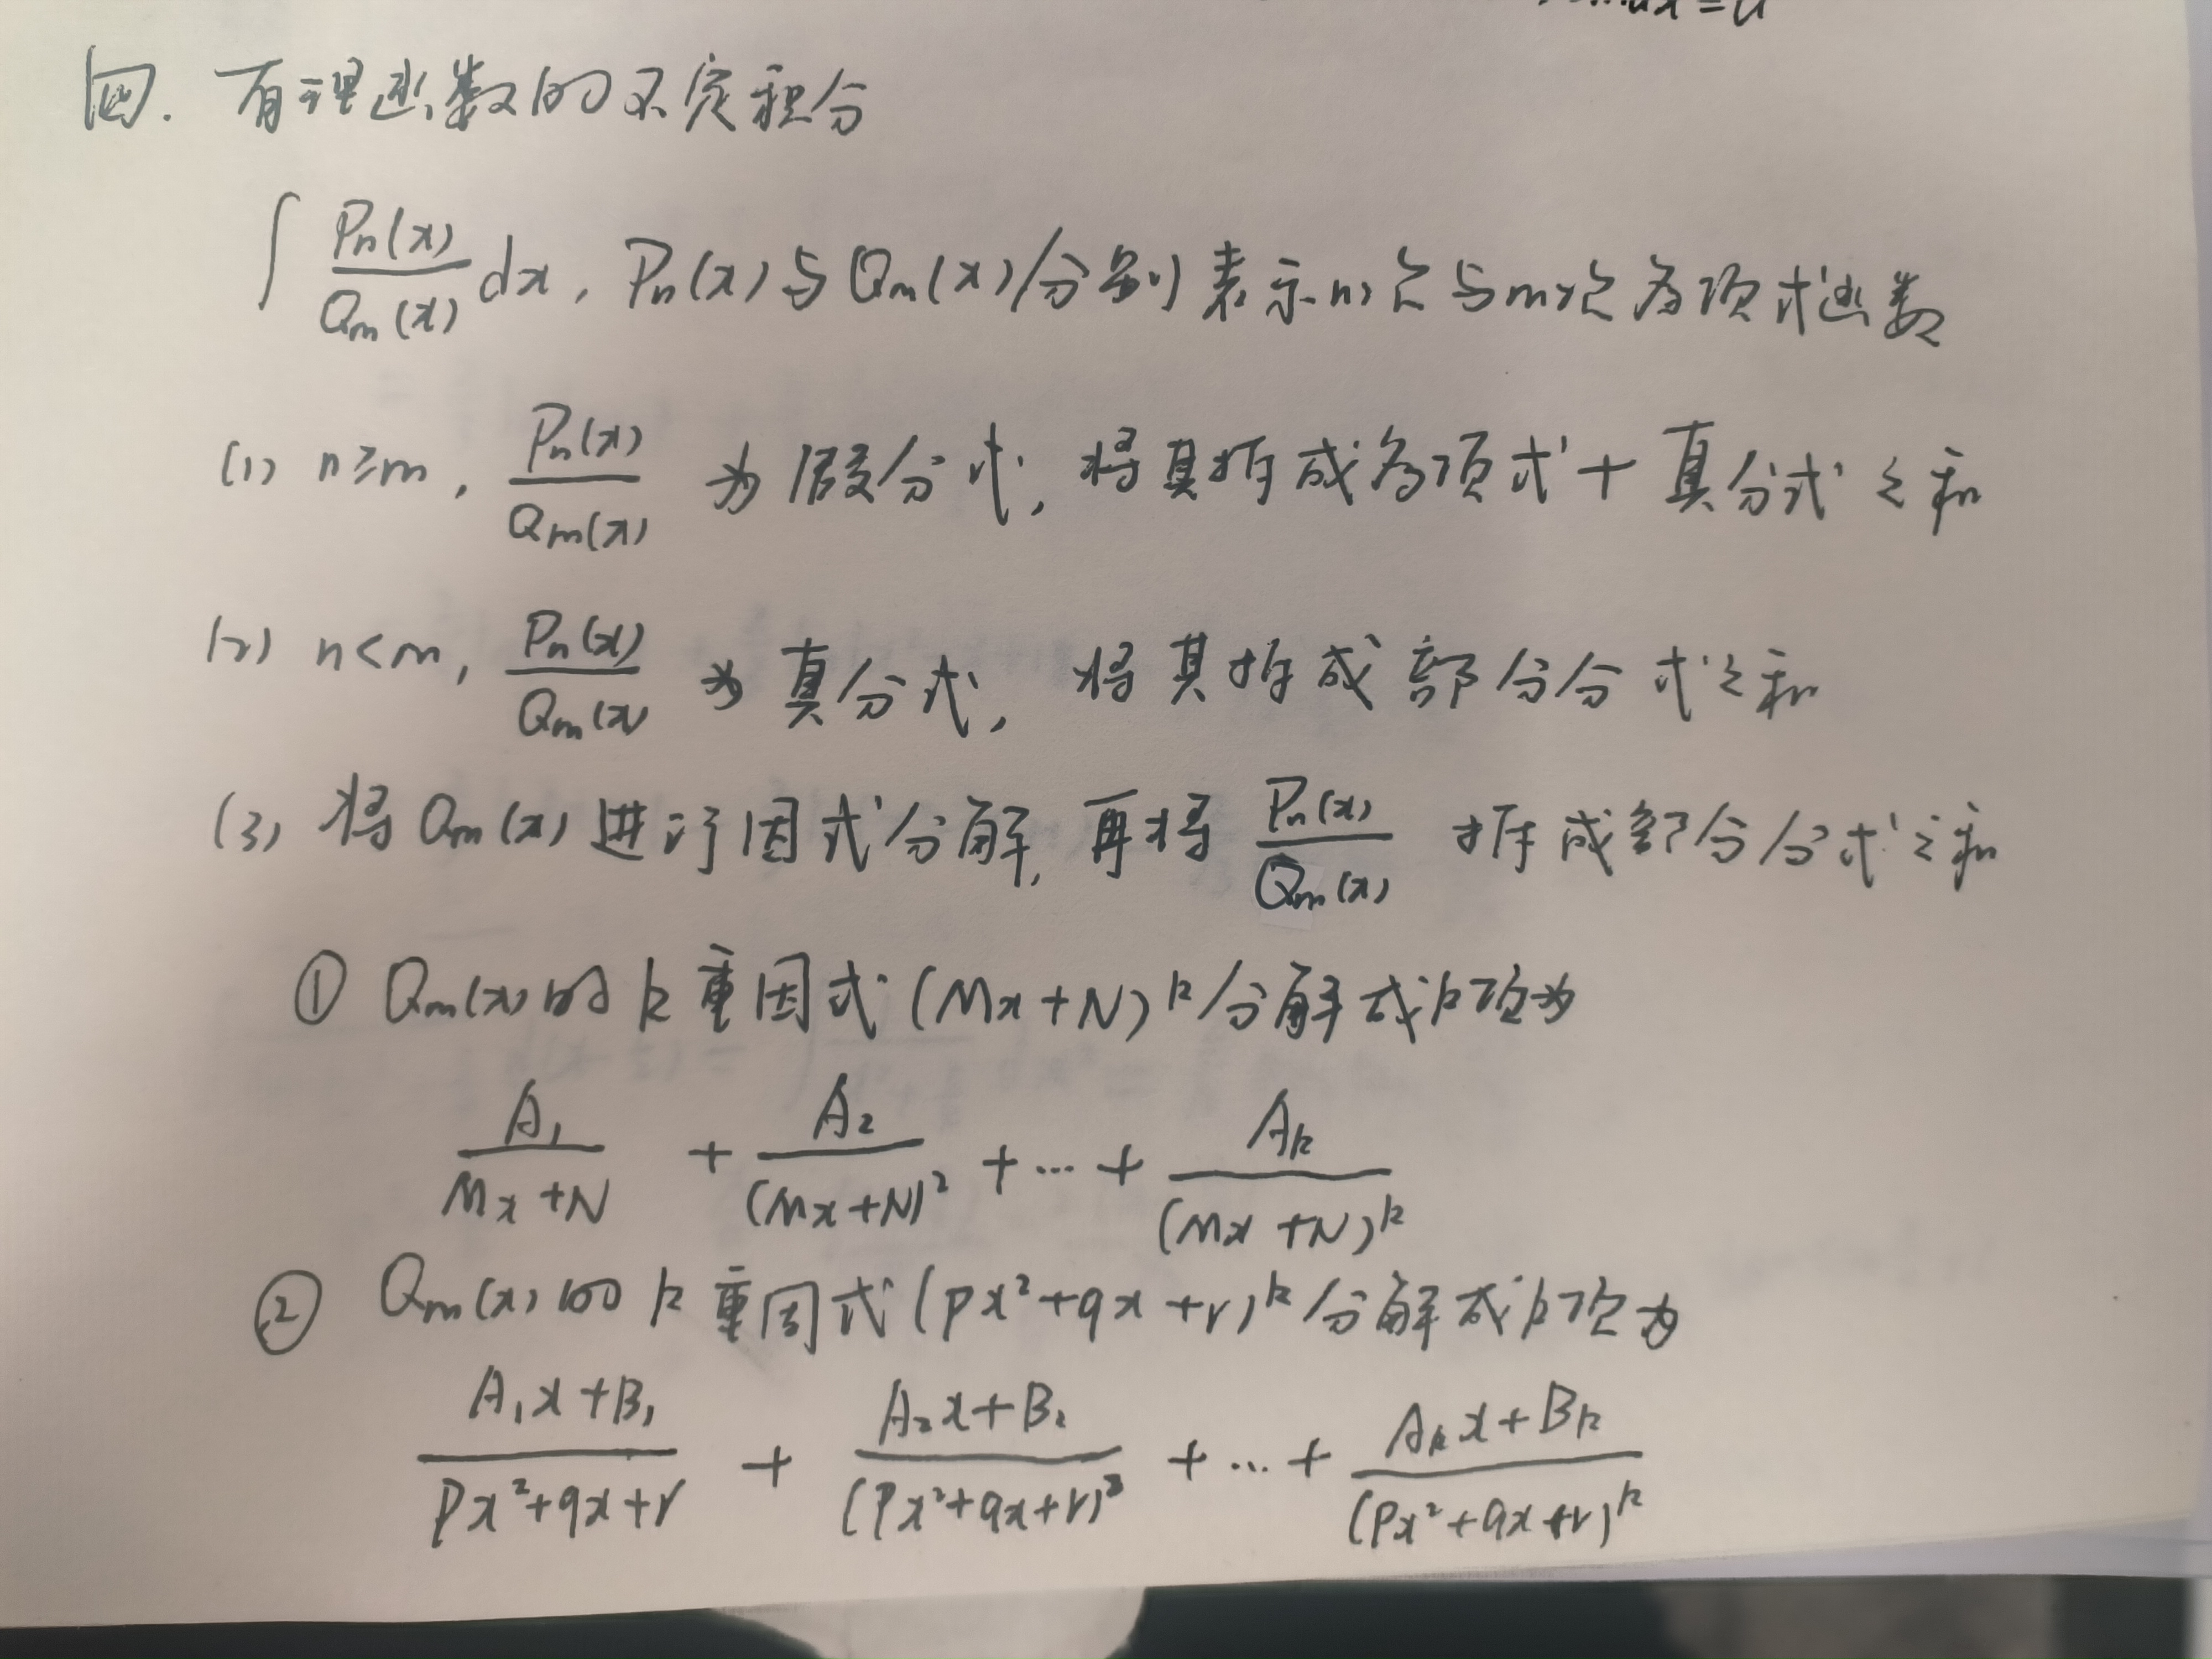 四. 有理函数的不定积分
∫ Pn(x)/Qm(x) dx, Pn(x)与Qm(x)分别表示n次与m次多项式函数
(1) n≥m, Pn(x)/Qm(x) 为假分式, 将其拆成多项式+真分式之和
(2) n<m, Pn(x)/Qm(x) 为真分式, 将其拆成部分分式之和
(3) 将Qm(x)进行因式分解, 再将 Pn(x)/Qm(x) 拆成部分分式之和
① Qm(x)的k重因式(Mx+N)^k分解成k项为
A₁/(Mx+N) + A₂/(Mx+N)² + ... + Ak/(Mx+N)^k
② Qm(x)的k重因式(px²+qx+r)^k分解成k项为
(A₁x+B₁)/(px²+qx+r) + (A₂x+B₂)/(px²+qx+r)² + ... + (Akx+Bk)/(px²+qx+r)^k